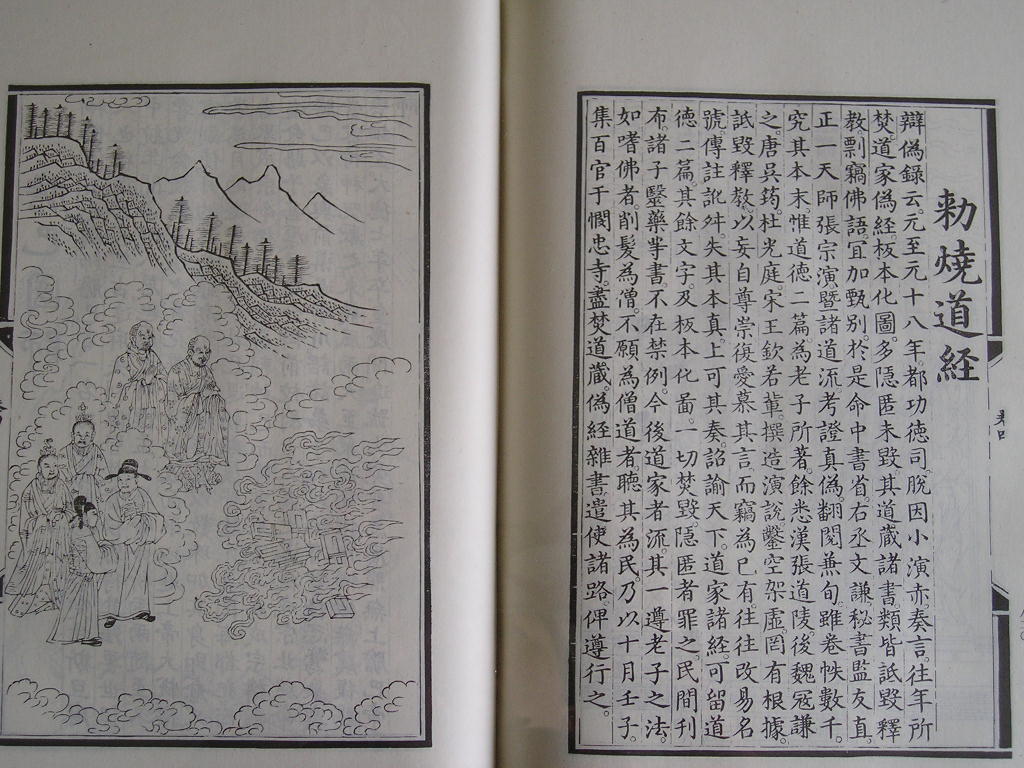 勅燒道経
辯偽錄云。元至元十八年。都功德司脫因小演赤奏言。往年所
焚道家偽経。板本化圖。多隱匿未毀。其道藏諸書。類皆詆毀釋
教。剽竊佛語。冝加甄別。於是命中書省右丞文謙。秘書監友直。
正一天師張宗演。暨諸道流考證真偽。翻閱兼旬。雖卷帙數千。
究其本末。惟道德二篇為老子所著。餘悉漢張道陵。後魏冦謙
之。唐吳筠。杜光庭。宋王欽若軰。撰造演說。鑿空架虛。罔有根據。
詆毀釋教。以妄自尊崇。復愛慕其言而竊為已有。往往改易名
號。傳註訛舛。失其本真。上可其奏。詔諭天下。道家諸経。可留道
德二篇。其餘文字。及板本化畫。一切焚毀。隱匿者罪之。民間刊
布諸子醫藥等書。不在禁例。今後道家者流。其一遵老子之法。
如嗜佛者。削髮為僧。不願為僧道者。聽其為民。乃以十月壬子。
集百官于憫忠寺。盡焚道藏偽経雜書。遣使諸路俾遵行之。
卷四